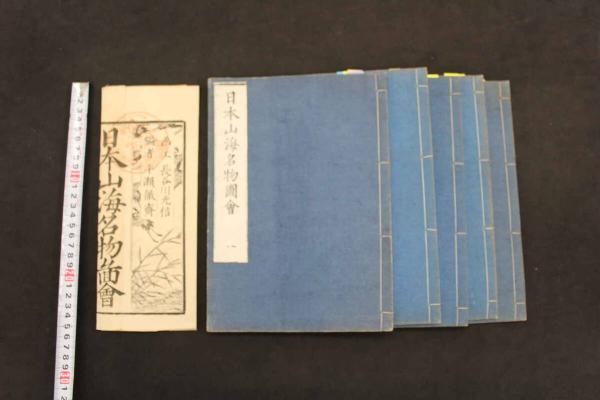 畫工 長谷川光信
編者 平瀬徹齋
日本山海名物圖會
日本山海名物圖會
一